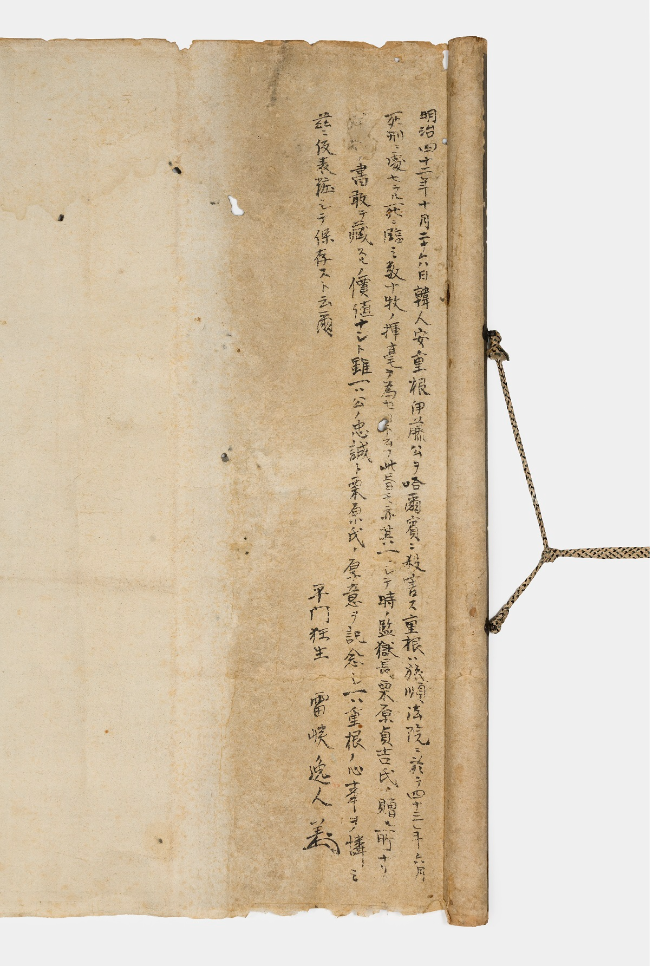 明治四十二年十月二十六日韓人安重根伊藤公ヲ哈爾賓ニ殺害ス重根ハ旅順法院ニ於テ四十三年六月
死刑ニ處セラル死ニ臨ミ数十枚ノ揮毫ヲ為セリト云フ此書モ亦其一ニシテ時ノ監獄長栗原貞吉氏ノ贈ル所ナリ
書敢テ藏スルノ價値ナシト雖一ハ公ノ忠誠ト栗原氏ノ厚意ヲ記念シ一ハ重根ノ心事ヲ憐ミ
茲ニ仮表装シテ保存スト云爾
平門狂生 雷峽ノ逸人